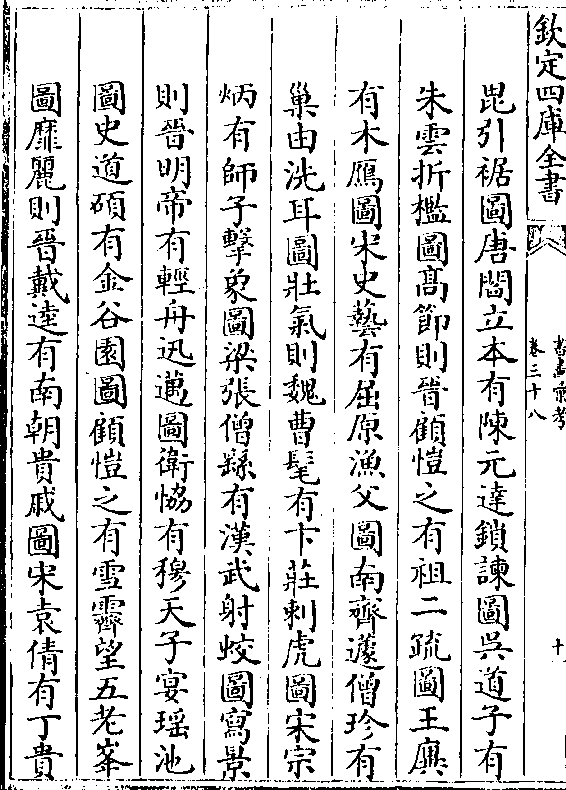 欽定四庫全書
書畫彙考
卷三十八
十
毘引裾圖唐閻立本有陳元達鎖諫圖吳道子有
朱雲折檻圖髙節則晉顧愷之有祖二疏圖王廙
有木鴈圖宋史藝有屈原漁父圖南齊蘧僧珍有
巢由洗耳圖壯氣則魏曹髦有卞莊刺虎圖宋宗
炳有師子擊象圖梁張僧繇有漢武射蛟圖寫景
則晉明帝有輕舟迅邁圖衛恊有穆天子宴瑶池
圖史道碩有金谷園圖顧愷之有雪霽望五老峯
圖靡麗則晉戴逵有南朝貴戚圖宋袁倩有丁貴